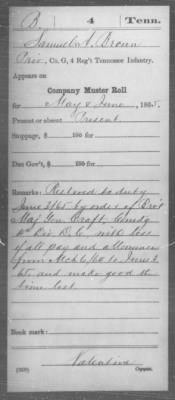 B. 4 Tenn.
Samuel A. Brown
Priv., Co. G, 4 Reg't Tennessee Infantry.
Appears on
Company Muster Roll
for May & June, 1865.
Present or absent Present
Stoppage, $ 100 for
Due Gov't, $ 100 for
Remarks: Restored to duty
June 3/65 by order of Brvt
Maj Gen. Craft, Comdg
Div D.C, with loss
of all pay and allowances
from Mch 6/64 to June 3
65 and make good the
time lost
Book mark:
(358) Valentine
Copyist.